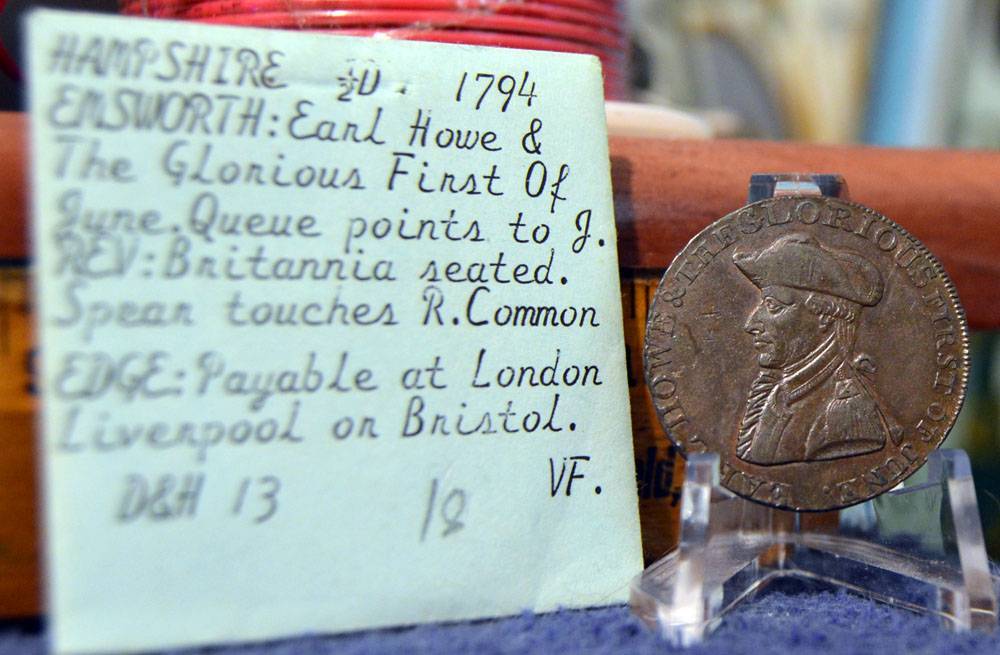 HAMPSHIRE ½D. 1794
EMSWORTH: Earl Howe &
The Glorious First Of
June. Queue points to J.
REV: Britannia seated.
Spear touches R. Common
EDGE: Payable at London
Liverpool or Bristol.
VF.
D&H 13 18
EARL HOWE & THE GLORIOUS FIRST OF JUNE.